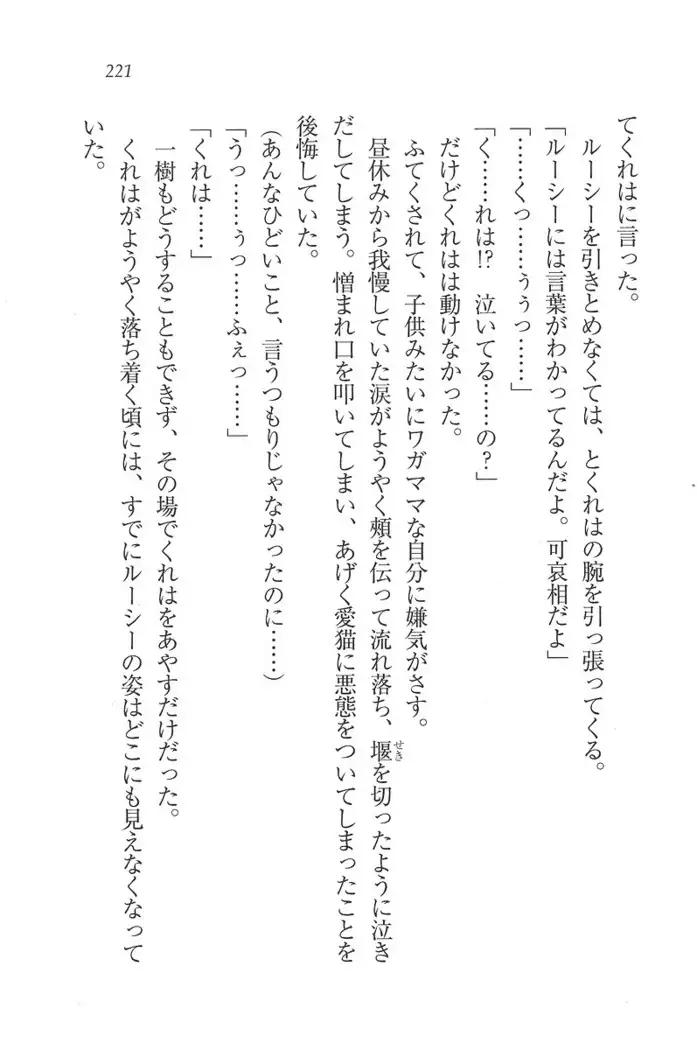 221
てくれはに言った。
　ルーシーを引きとめなくては、とくれはの腕を引っ張ってくる。
「ルーシーには言葉がわかってるんだよ。可哀相だよ」
「……くっ……ぅぅっ……」
「く……れは!?　泣いてる……の？」
だけどくれはは動けなかった。
　ふてくされて、子供みたいにワガママな自分に嫌気がさす。
　昼休みから我慢していた涙がようやく頰を伝って流れ落ち、堰を切ったように泣き
せき
だしてしまう。憎まれ口を叩いてしまい、あげく愛猫に悪態をついてしまったことを
後悔していた。
（あんなひどいこと、言うつもりじゃなかったのに……）
「うっ……ぅっ……ふぇっ……」
「くれは……」
　一樹もどうすることもできず、その場でくれはをあやすだけだった。
　くれはがようやく落ち着く頃には、すでにルーシーの姿はどこにも見えなくなって
いた。